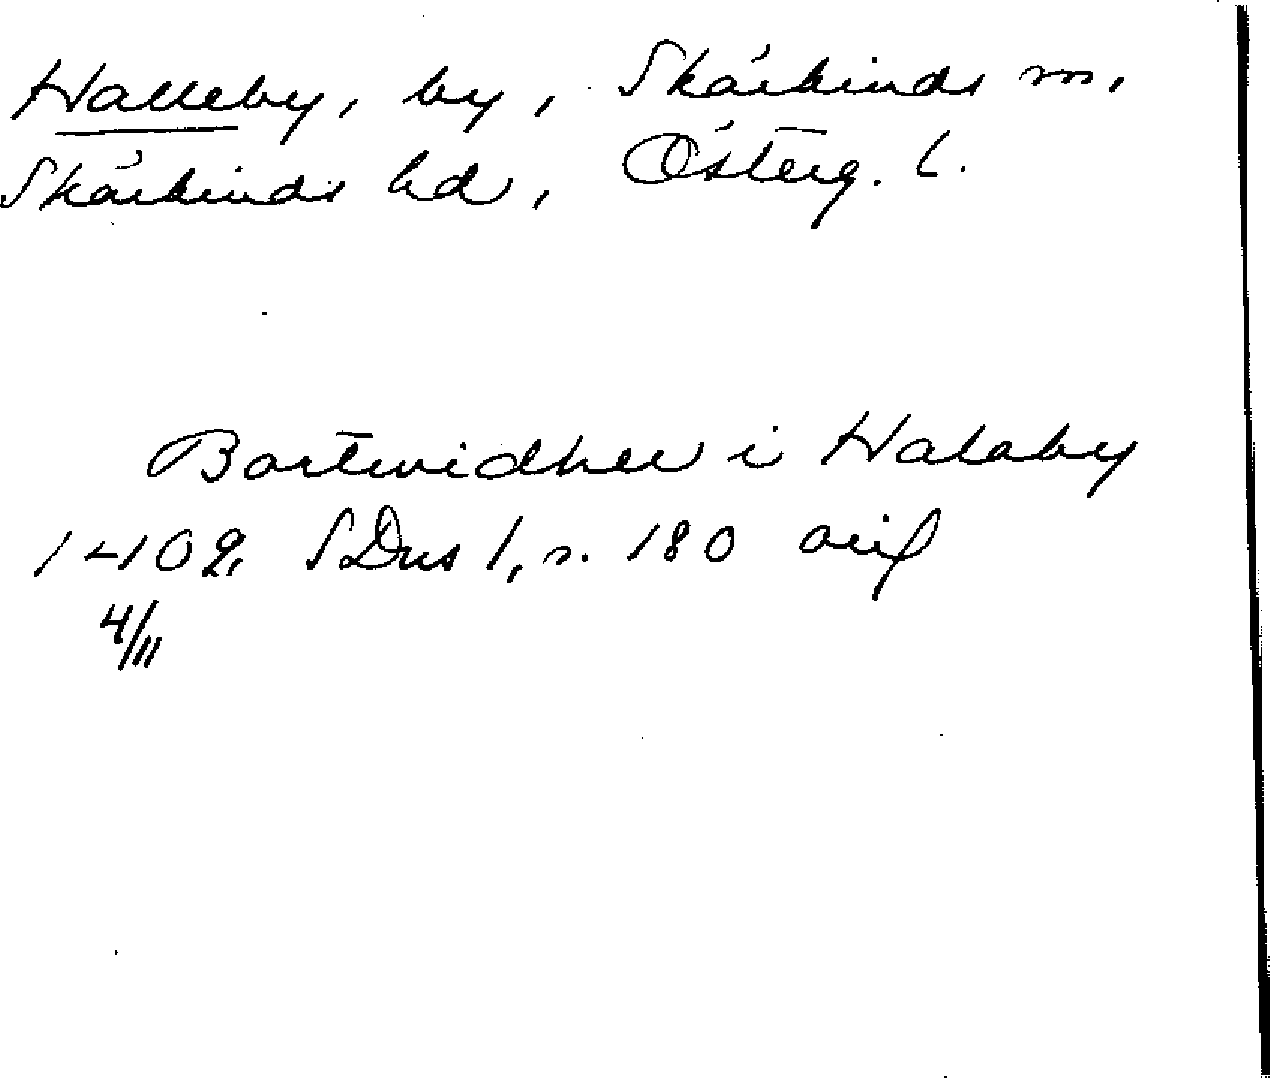 Halleby, by, Skärkinds sn,
Skärkinds hd, Österg. l.
Bortwidher i Halaby
1402 SDns 1, s. 180 orig
4/11